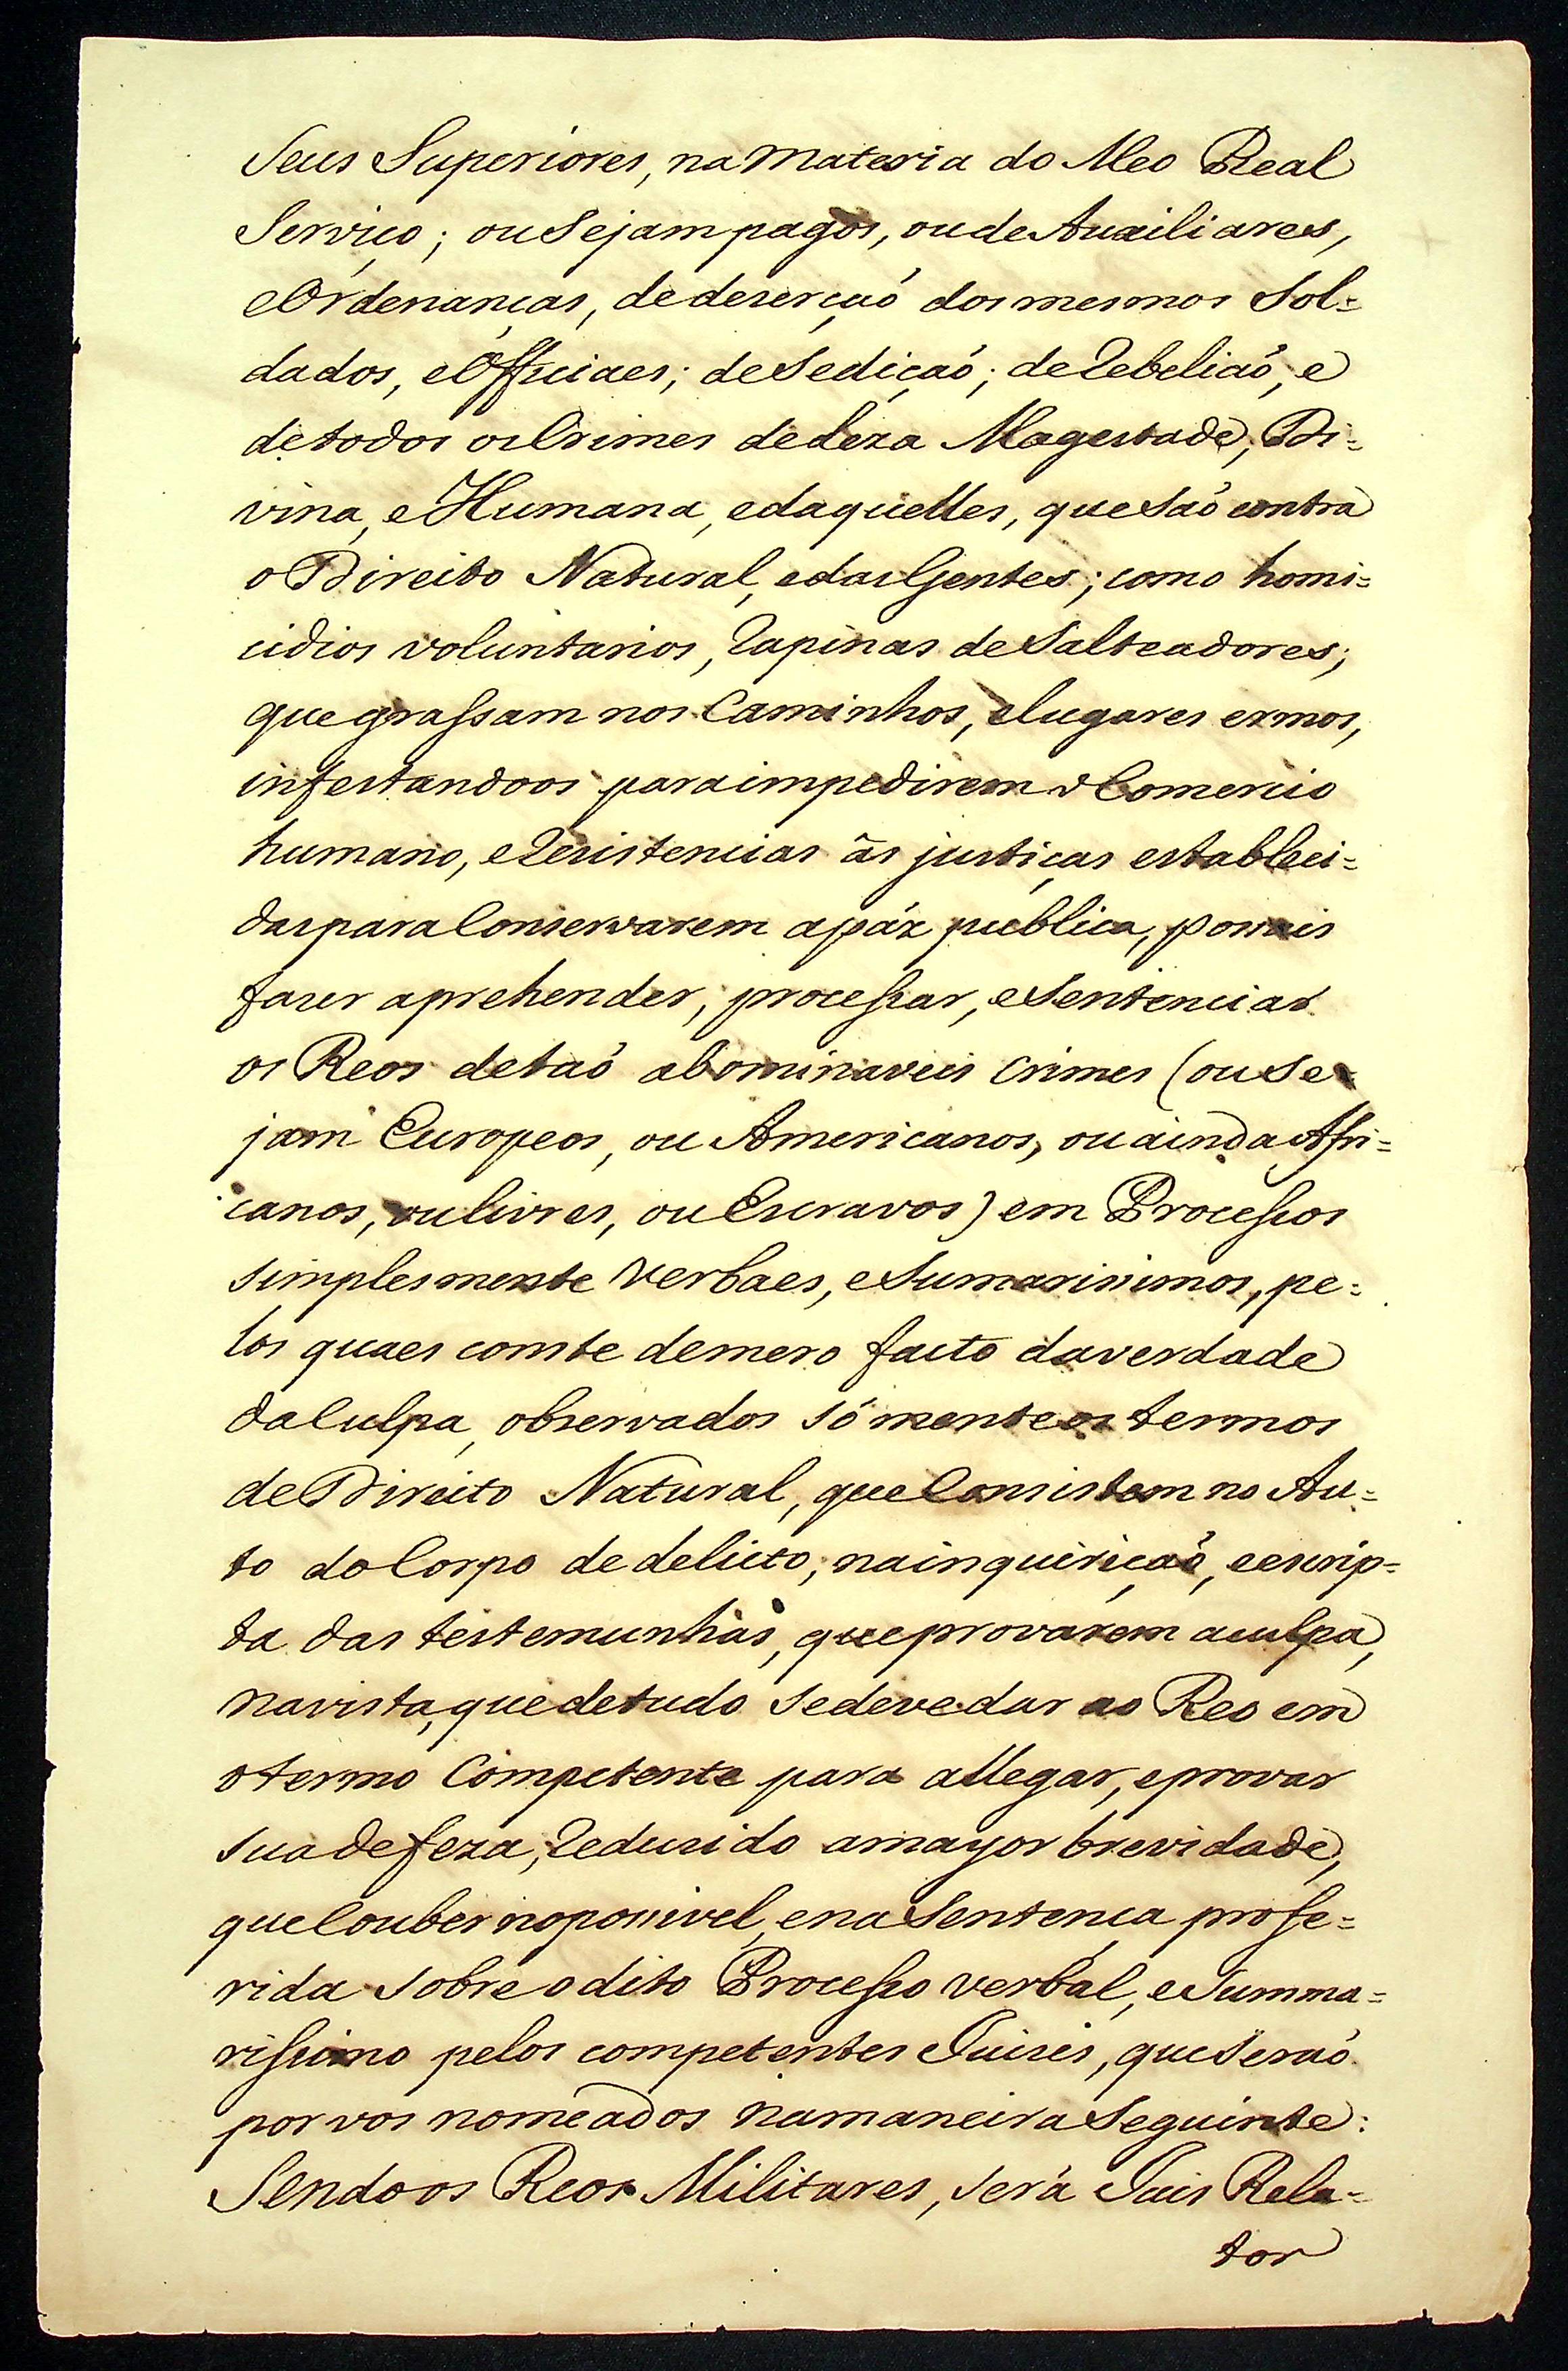 Seus Superiores, na materia do Meo Real
Serviço; ou Sejam pagos, ou de Auxiliares,
e Ordenanças, de deserçaõ dos mesmos Sol=
dados, e Officiaes; de Sediçaõ; de Rebeliaõ, e
de todos os Crimes de leza Magestade, Di=
vina, e Humana, e daquelles, que Saõ contra
o Direito Natural, e das Gentes; como homi=
cidios voluntarios, Rapinas de Salteadores;
que grassam nos Caminhos, e lugares ermos,
infestandoos para impedirem o Comercio
humano, e Resistencias ás justiças estableci=
das para Conservarem a páz publica, possais
fazer aprehender, processar, e Sentenciar
os Reos de taõ abominaveis crimes (ou Se=
jam Europeos, ou Americanos, ou ainda Afri=
canos, ou livres, ou Escravos) em Processos
simplesmente verbaes, e Sumarissimos, pe=
los quaes conste de mero facto da verdade
da Culpa, observados sómente os termos
de Direito Natural, que Consistem no Au=
to do Corpo de delicto; na inquiriçaõ, e escrip=
ta das testemunhas, que provarem a culpa,
na vista, que de tudo se deve dar ao Reo em
o termo Competente para allegar, e provar
sua defeza, Reducido a mayor brevidade,
que Couber no possivel, e na Sentença profe=
rida sobre o dito Processo verbal, e Summa=
rissimo pelos competentes Juises, que Seraõ
por vos nomeados na maneira Seguinte:
Sendo os Reos Militares, será Juis Rela=
tor